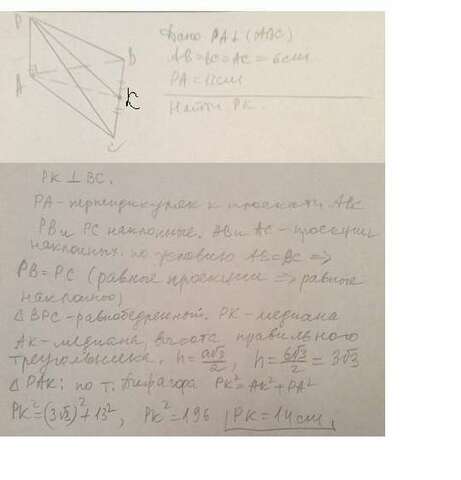 P
A
B
K
C
Дано PA⊥(ABC)
AB=BC=AC=6см
PA=13см
Найти PK.
PK ⊥ BC.
PA - перпендикуляр к плоскости ABC
PB и PC наклонные. AB и AC - проекции
наклонных. по условию AB=BC =>
PB=PC (равные проекции => равные
наклонные)
Δ BPC - равнобедренный. PK - медиана
AK - медиана, высота правильного
треугольника. h = a√3/2, h = 6√3/2 = 3√3
Δ PAK: по т. Пифагора PK² = AK² + PA²
PK² = (3√3)² + 13², PK² = 196 PK = 14 см